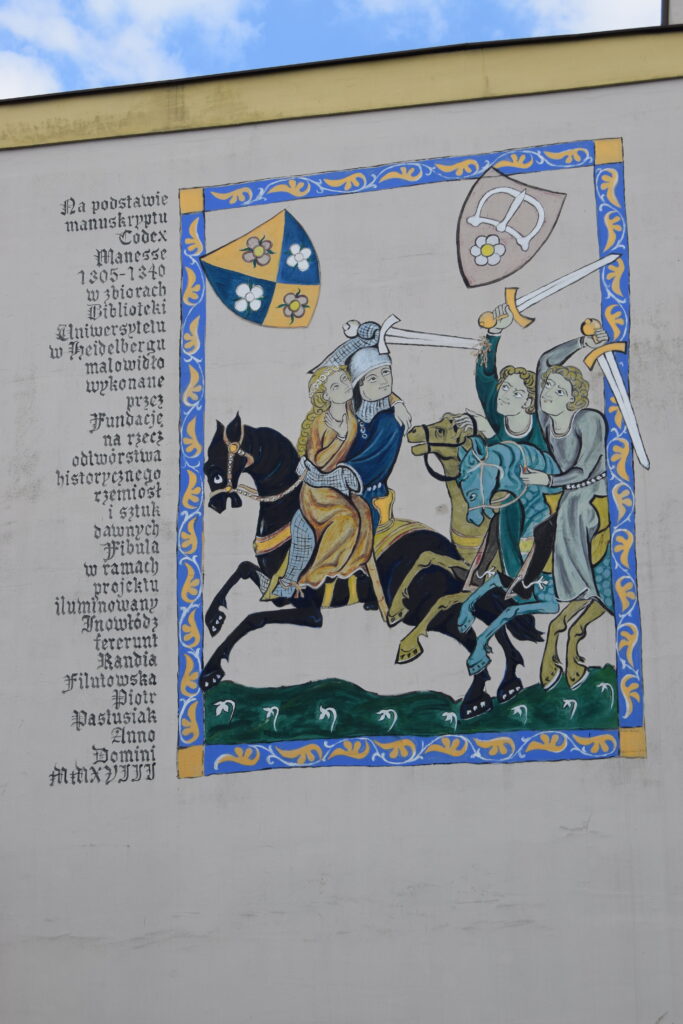 Na podstawie
manuskryptu
Codex
Manesse
1305-1340
w zbiorach
Biblioteki
Uniwersytetu
w Heidelbergu
malowidło
wykonane
przez
Fundację
na rzecz
odtwórstwa
historycznego
rzemiosł
i sztuk
dawnych
Fibula
w ramach
projektu
iluminowany
Inowłódz
fererunt
Randia
Filutowska
Piotr
Pastusiak
Anno
Domini
MMXVIII